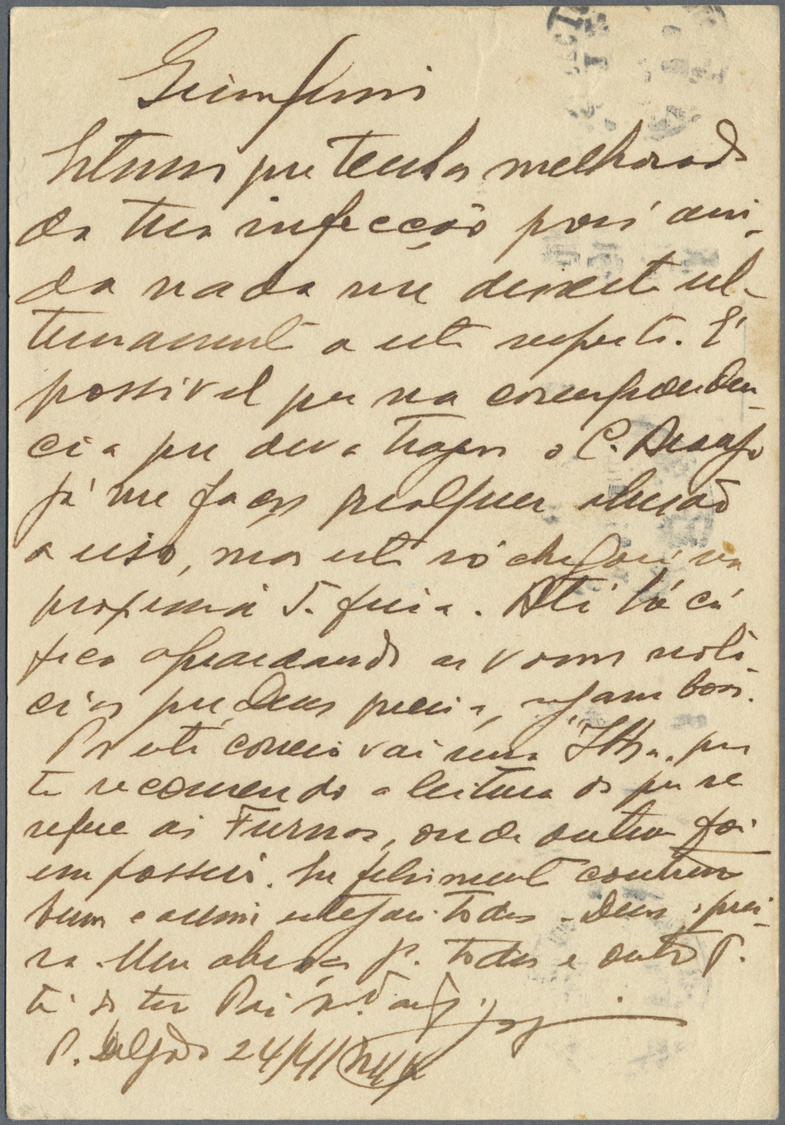 Estimo que tenhas melhorado
da tua infecção pois ain-
da nada me disseste ul-
timamente a este respeito. É
possivel que na corresponden-
cia que deva trazer o C. Araujo
já me faças qualquer alusão
a isso, mas esta só chegará na
proxima 5ª feira. Até lá cá
fico aguardando as vossas noti-
cias que Deus queira, sejam boas.
Por este correio vai uma que
te recomendo a leitura do que se
refere ás Furnas, onde ontem foi
em passeio. Felizmente continuo
bem e assim estejais todos Deus o quei-
ra. Um abraço p. todos e outro p.
ti do teu Pai m.to am.go
P. Delgada 24/4/